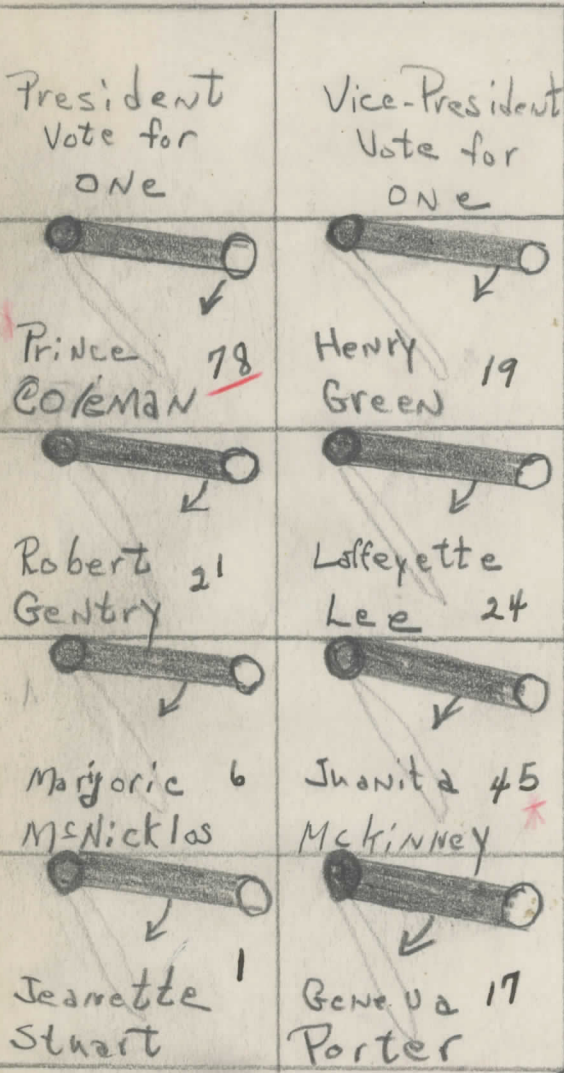 President
Vote for
ONe
Prince 78
COleMAN
Robert 21
Gentry
Marjoric 6
McNicklos
Jeanette 1
Stuart
Vice-President
Vote for
ONe
Henry 19
Green
Laffeyette
Lee 24
Juanita 45
McKinney
Geneva 17
Porter